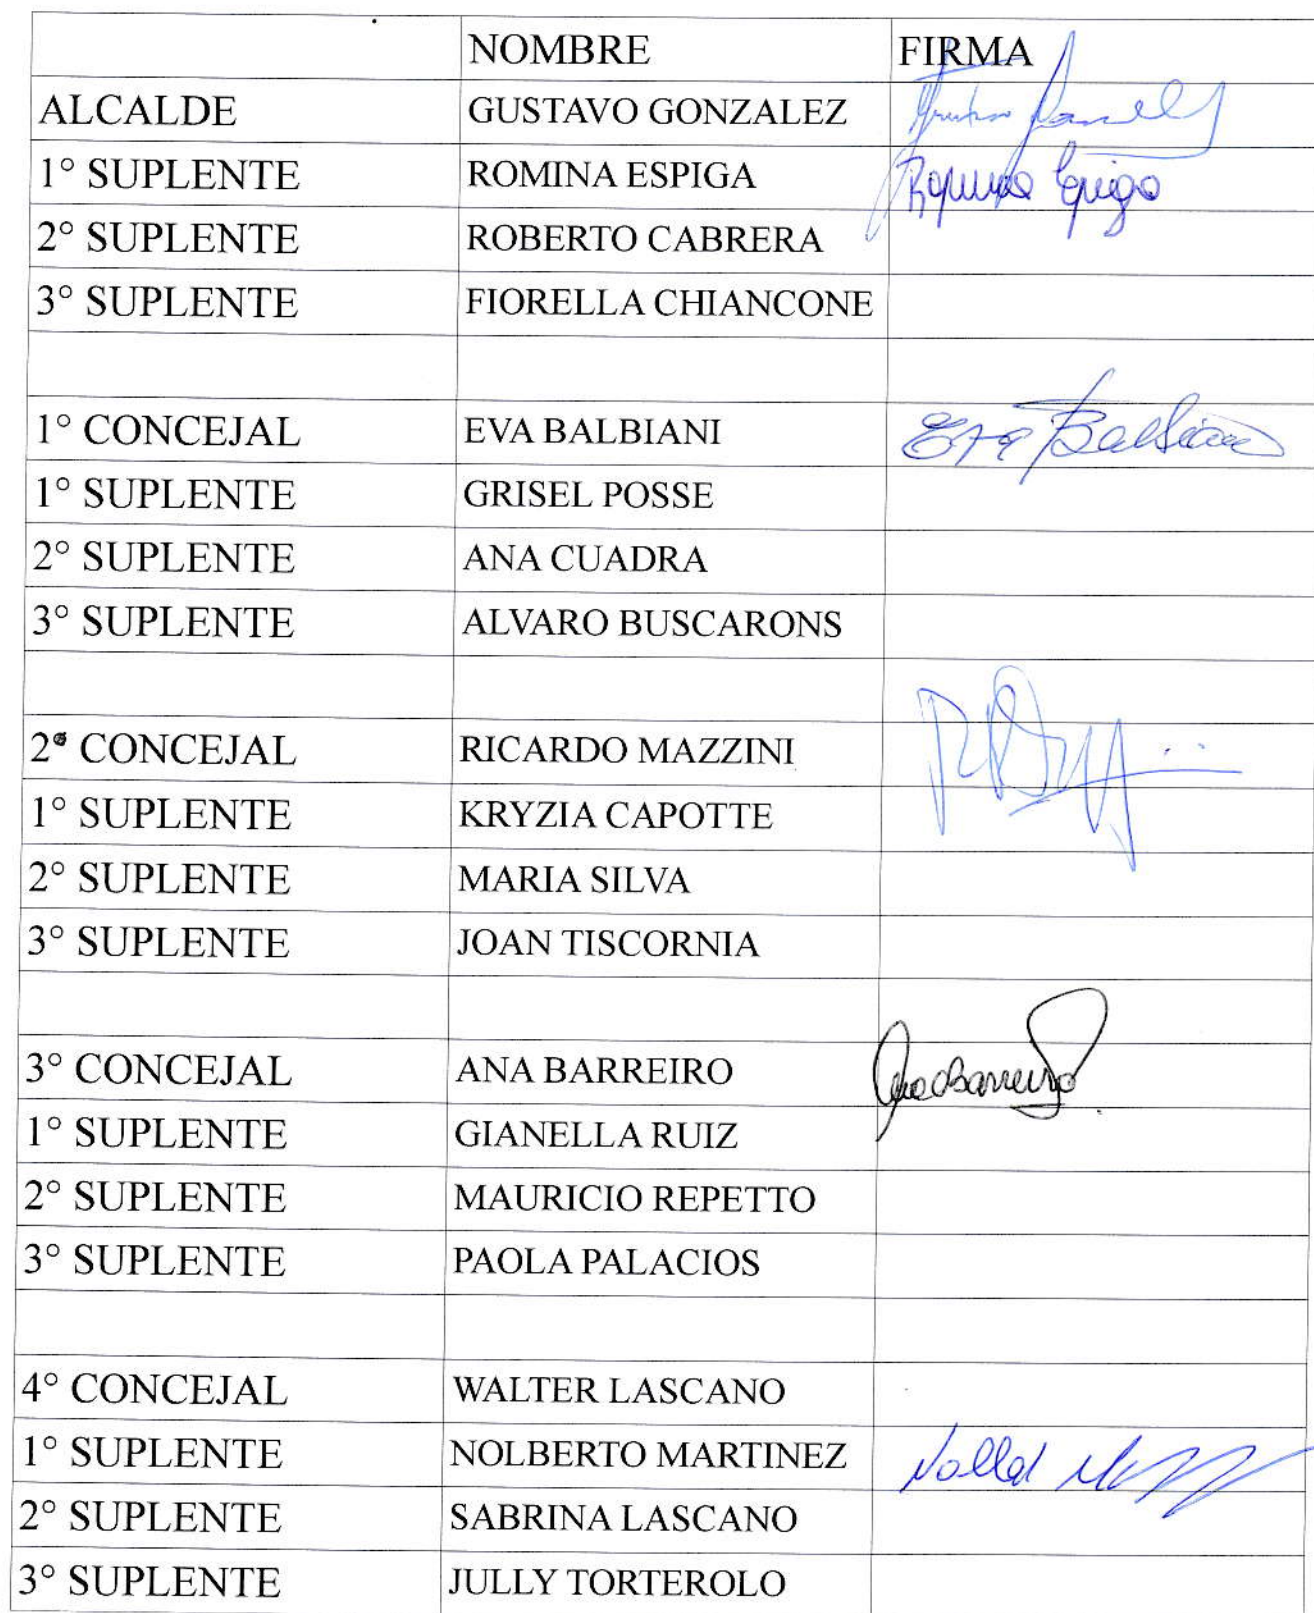 NOMBRE FIRMA
ALCALDE GUSTAVO GONZALEZ
1° SUPLENTE ROMINA ESPIGA Romina Espiga
2° SUPLENTE ROBERTO CABRERA
3° SUPLENTE FIORELLA CHIANCONE
1° CONCEJAL EVA BALBIANI Eva Balbiani
1° SUPLENTE GRISEL POSSE
2° SUPLENTE ANA CUADRA
3° SUPLENTE ALVARO BUSCARONS
2° CONCEJAL RICARDO MAZZINI
1° SUPLENTE KRYZIA CAPOTTE
2° SUPLENTE MARIA SILVA
3° SUPLENTE JOAN TISCORNIA
3° CONCEJAL ANA BARREIRO Ana Barreiro
1° SUPLENTE GIANELLA RUIZ
2° SUPLENTE MAURICIO REPETTO
3° SUPLENTE PAOLA PALACIOS
4° CONCEJAL WALTER LASCANO
1° SUPLENTE NOLBERTO MARTINEZ
2° SUPLENTE SABRINA LASCANO
3° SUPLENTE JULLY TORTEROLO